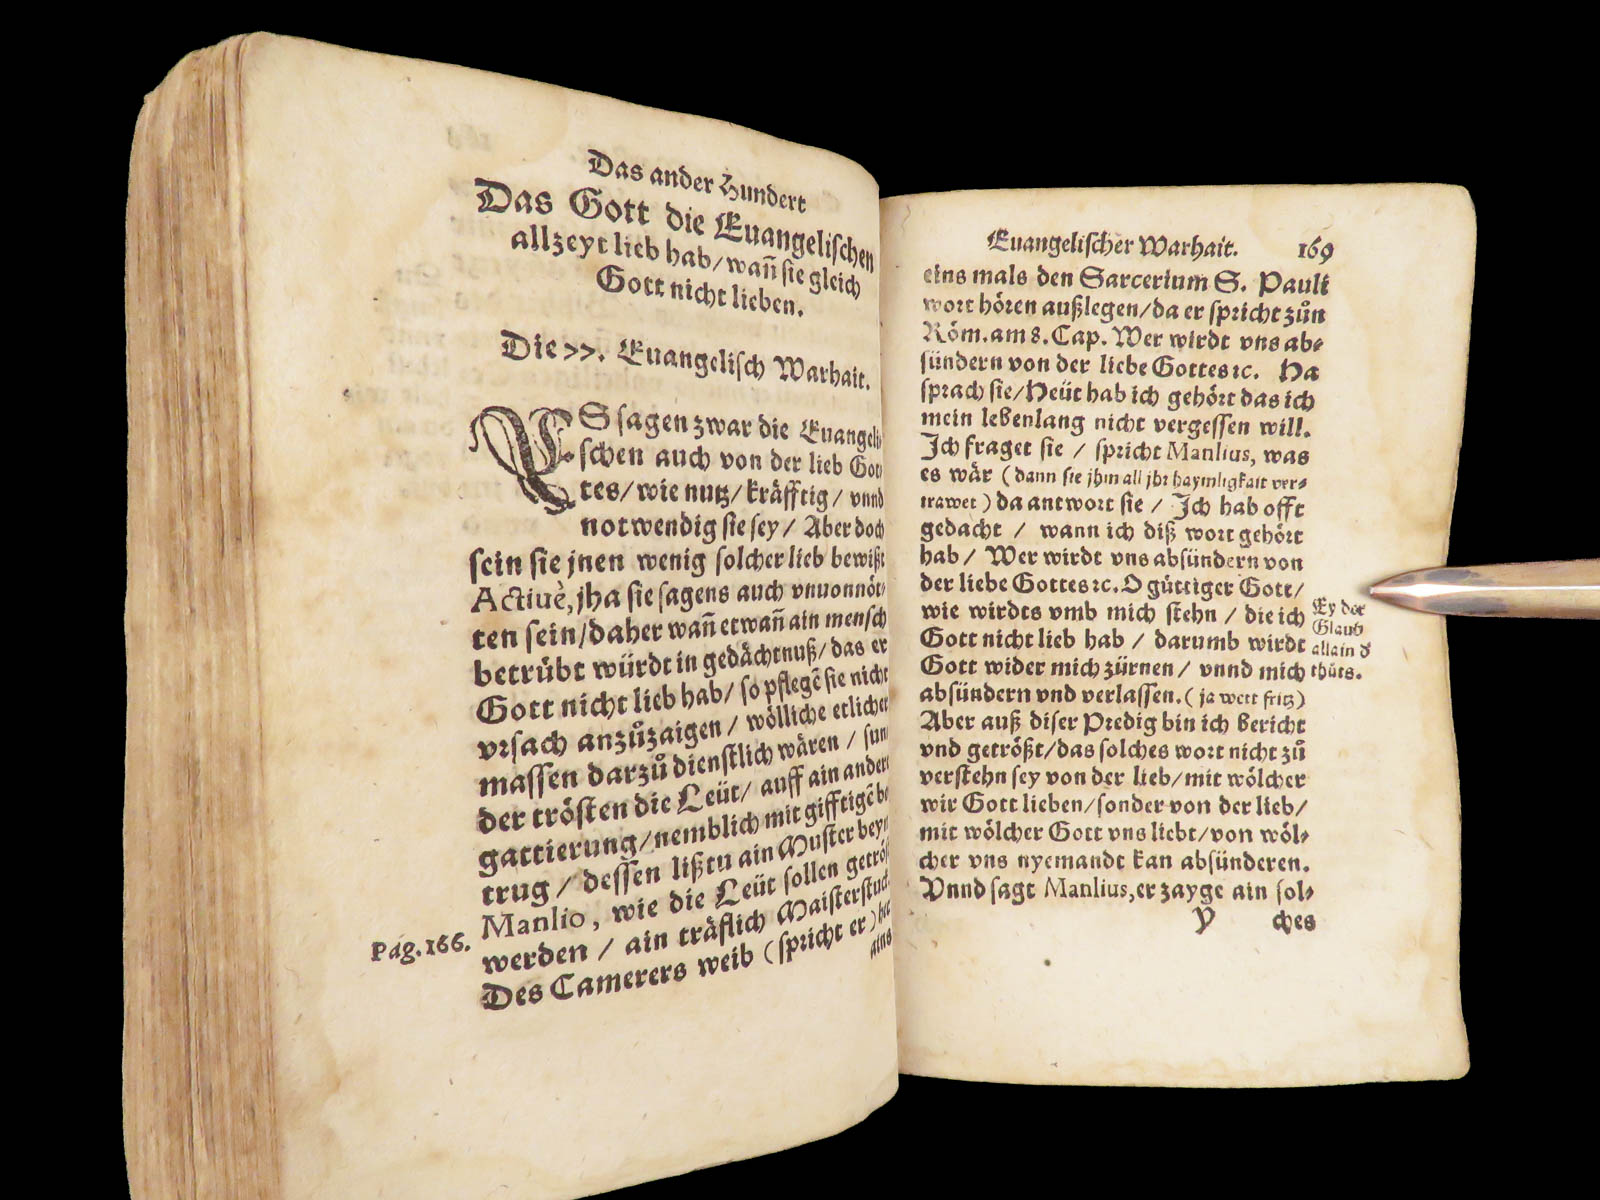 Das ander Hundert
Das Gott die Euangelischen
allzeyt lieb hab/wañ sie gleich
Gott nicht lieben.
Die 77. Euangelisch Warhait.
ES sagen zwar die Euangeli-
schen auch von der lieb Got
tes/wie nutz/kräfftig/vnnd
notwendig sie sey/Aber doch
sein sie jnen wenig solcher lieb bewißt
Actiuè, jha sie sagens auch vnuonnöt-
ten sein/daher wañ etwañ ain mensch
betrübt würdt in gedächtnuß/das er
Gott nicht lieb hab/so pflegẽ sie nicht
vrsach anzůzaigen/wölliche etlicher
massen darzů dienstlich wären/sun
der trösten die Leüt/auff ain andere
gattierung/nemblich mit gifftigẽ be
trug/dessen lißtu ain Muster beym
Pag.166.
Manlio, wie die Leüt sollen getröst
werden/ain träflich Maisterstuck.
Des Camerers weib (spricht er) hat
ains
Euangelischer Warhait. 169
eins mals den Sarcerium S. Pauli
wort hören außlegen/da er spricht zůn
Röm.am 8. Cap. Wer wirdt vns ab-
sündern von der liebe Gottes ꝛc. Ha
sprach sie/Heüt hab ich gehört das ich
mein lebenlang nicht vergessen will.
Ich fraget sie / spricht Manlius, was
es wär (dann sie jhm all jhr haymligkait ver-
trawet) da antwort sie / Ich hab offt
gedacht / wann ich diß wort gehört
hab / Wer wirdt vns absündern von
der liebe Gottes ꝛc. O gütiger Gott/
wie wirdts vmb mich stehn / die ich
Gott nicht lieb hab / darumb wirdt
Gott wider mich zürnen / vnnd mich
absündern vnd verlassen. (ja wett fritz)
Ey der
Glaub
allain
thůts.
Aber auß diser Predig bin ich bericht
vnd getrößt/das solches wort nicht zů
verstehn sey von der lieb/mit wölcher
wir Gott lieben/sonder von der lieb/
mit wölcher Gott vns liebt/von wöl-
cher vns nyemandt kan absünderen.
Vnnd sagt Manlius, er zayge ain sol-
Y ches